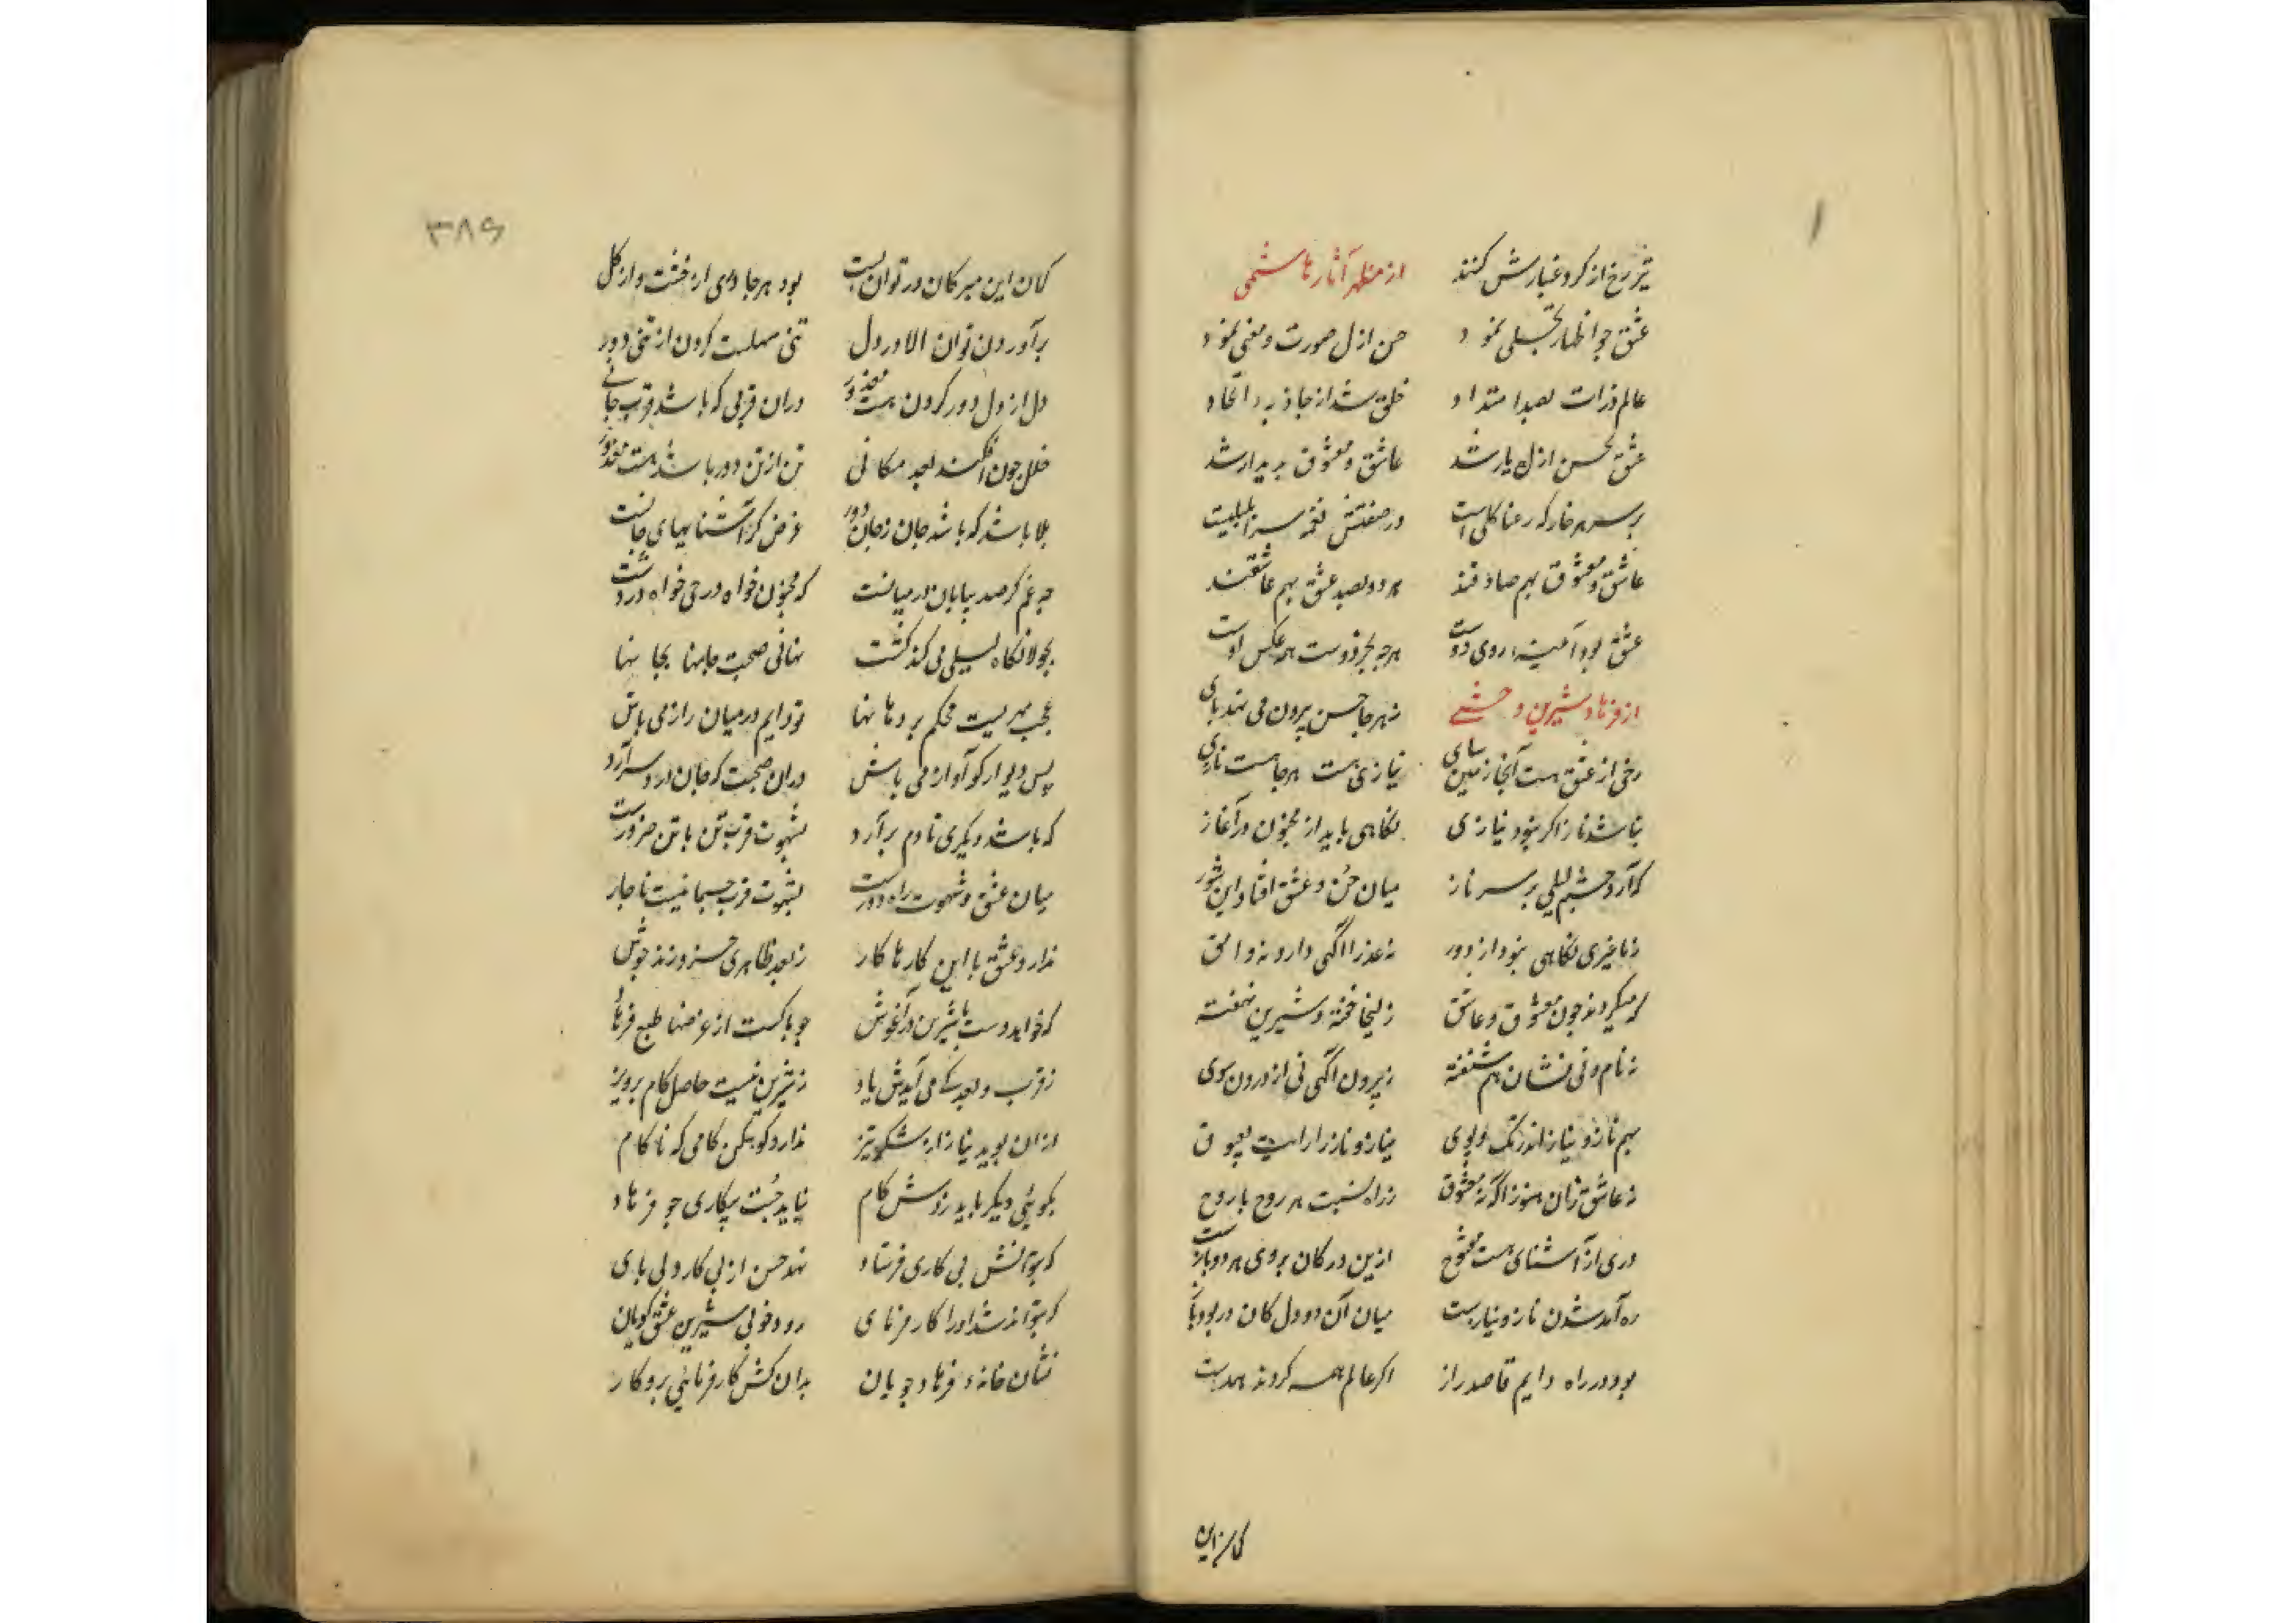 تیز رخ از کرد غبارش کنند از مظهر آثار هاشمی
عشق چو اظهار تجلی نمود حسن ازل صورت و معنی نمود
عالم ذرات بصد امتداد خلق شد از جاذبه اتحاد
عشق بحسن ازل یار شد عاشق و معشوق پدیدار شد
بر سر هر خار که رعنا کلی است در صفتش نغمه سرا بلبلیست
عاشق و معشوق بهم صادقند هر دو بصد عشق بهم عاشقند
عشق بود آئینه روی دوست هرچه بجز دوست همه عکس اوست
از فرهاد شیرین وحشی ز هر جا حسن بیرون می نهد پای
رخی از عشق هست آنجا زمین سای نیازی هست هر جا هست نازی
نباشد ناز اکر نبود نیازی نکاهی باید از مجنون در آغاز
که آرد چشم لیلی بر سر ناز میان حسن و عشق افتاد این شور
ز ما غیری نکاهی نبود از دور نه عذرا آگهی دارد نه وامق
که میکردند چون معشوق و عاشق زلیخا خفته و شیرین نهفته
نه نام و نی نشان هم شنفته ز بیرون آگهی نی از درون سوی
بهم ناز و نیاز اندر تک و پوی نیاز و ناز را رایت بعیوق
نه عاشق زان هنوز آگه نه معشوق ز راه نسبت هر روح با روح
دری از آشنای هست مفتوح ازین در کان بروی هر دو بازست
ره آمد شدن ناز و نیازست میان آن دو دل کان در بود باز
بود در راه دایم قاصد راز اکر عالم همه کردند همدست
کمان این
۳۸۶
کمان این مبر کان در توان بست بود هر جا دری از خشت و از کل
برآوردن توان الا در دل تنی سهلست کردن از تنی دور
دل از دل دور کردن هست معذور در ان قربی که باشد قرب جانی
خلل چون افکند بعد مکانی تن از تن دور باشد هست مقدور
بلا باشد که باشد جان ز جان دور غرض کز آشناییهای جانست
چه غم کر صد بیابان در میانست که مجنون خواه در حی خواه در دشت
بجولانکاه لیلی می کند کشت نهانی صحبت جانها بجانها
عجب مهریست محکم بر دهانها تو دایم در میان راز می باش
پس دیوار کو آواز می باش در ان صحبت که جان در دسر آرد
که باشد دیکری تا دم برآرد بشهوت قرب تن با تن ضرورست
میان عشق و شهوت راه دورست بشهوت قرب جسمانیست ناچار
ندارد عشق با این کارها کار ز بعد ظاهری خسرو زند جوش
که خواهد دست با شیرین در آغوش چو پاکست از غرضها طبع فرهاد
ز قرب و بعد کی می آیدش یاد ز شیرین نیست حاصل کام پرویز
از ان پوید نیاز از شکر تیز ندارد کوهکن کامی که ناکام
بکوئی دیکر باید زدش کام نیاید جست بیکاری چو فرهاد
که بتوانش پی کاری فرستاد نهد حسن از پی کار دلی پای
که بتواند شد او را کار فرمای رود خوبی شیرین عشق کویان
نشان خانه فرهاد جویان بدان کش کار فرمائی بر و کار